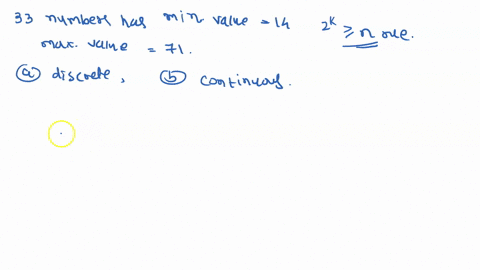 33 numbers has min value = 14
max. value = 71.
2^k ≥ n rule.
(a) discrete, (b) continuous.